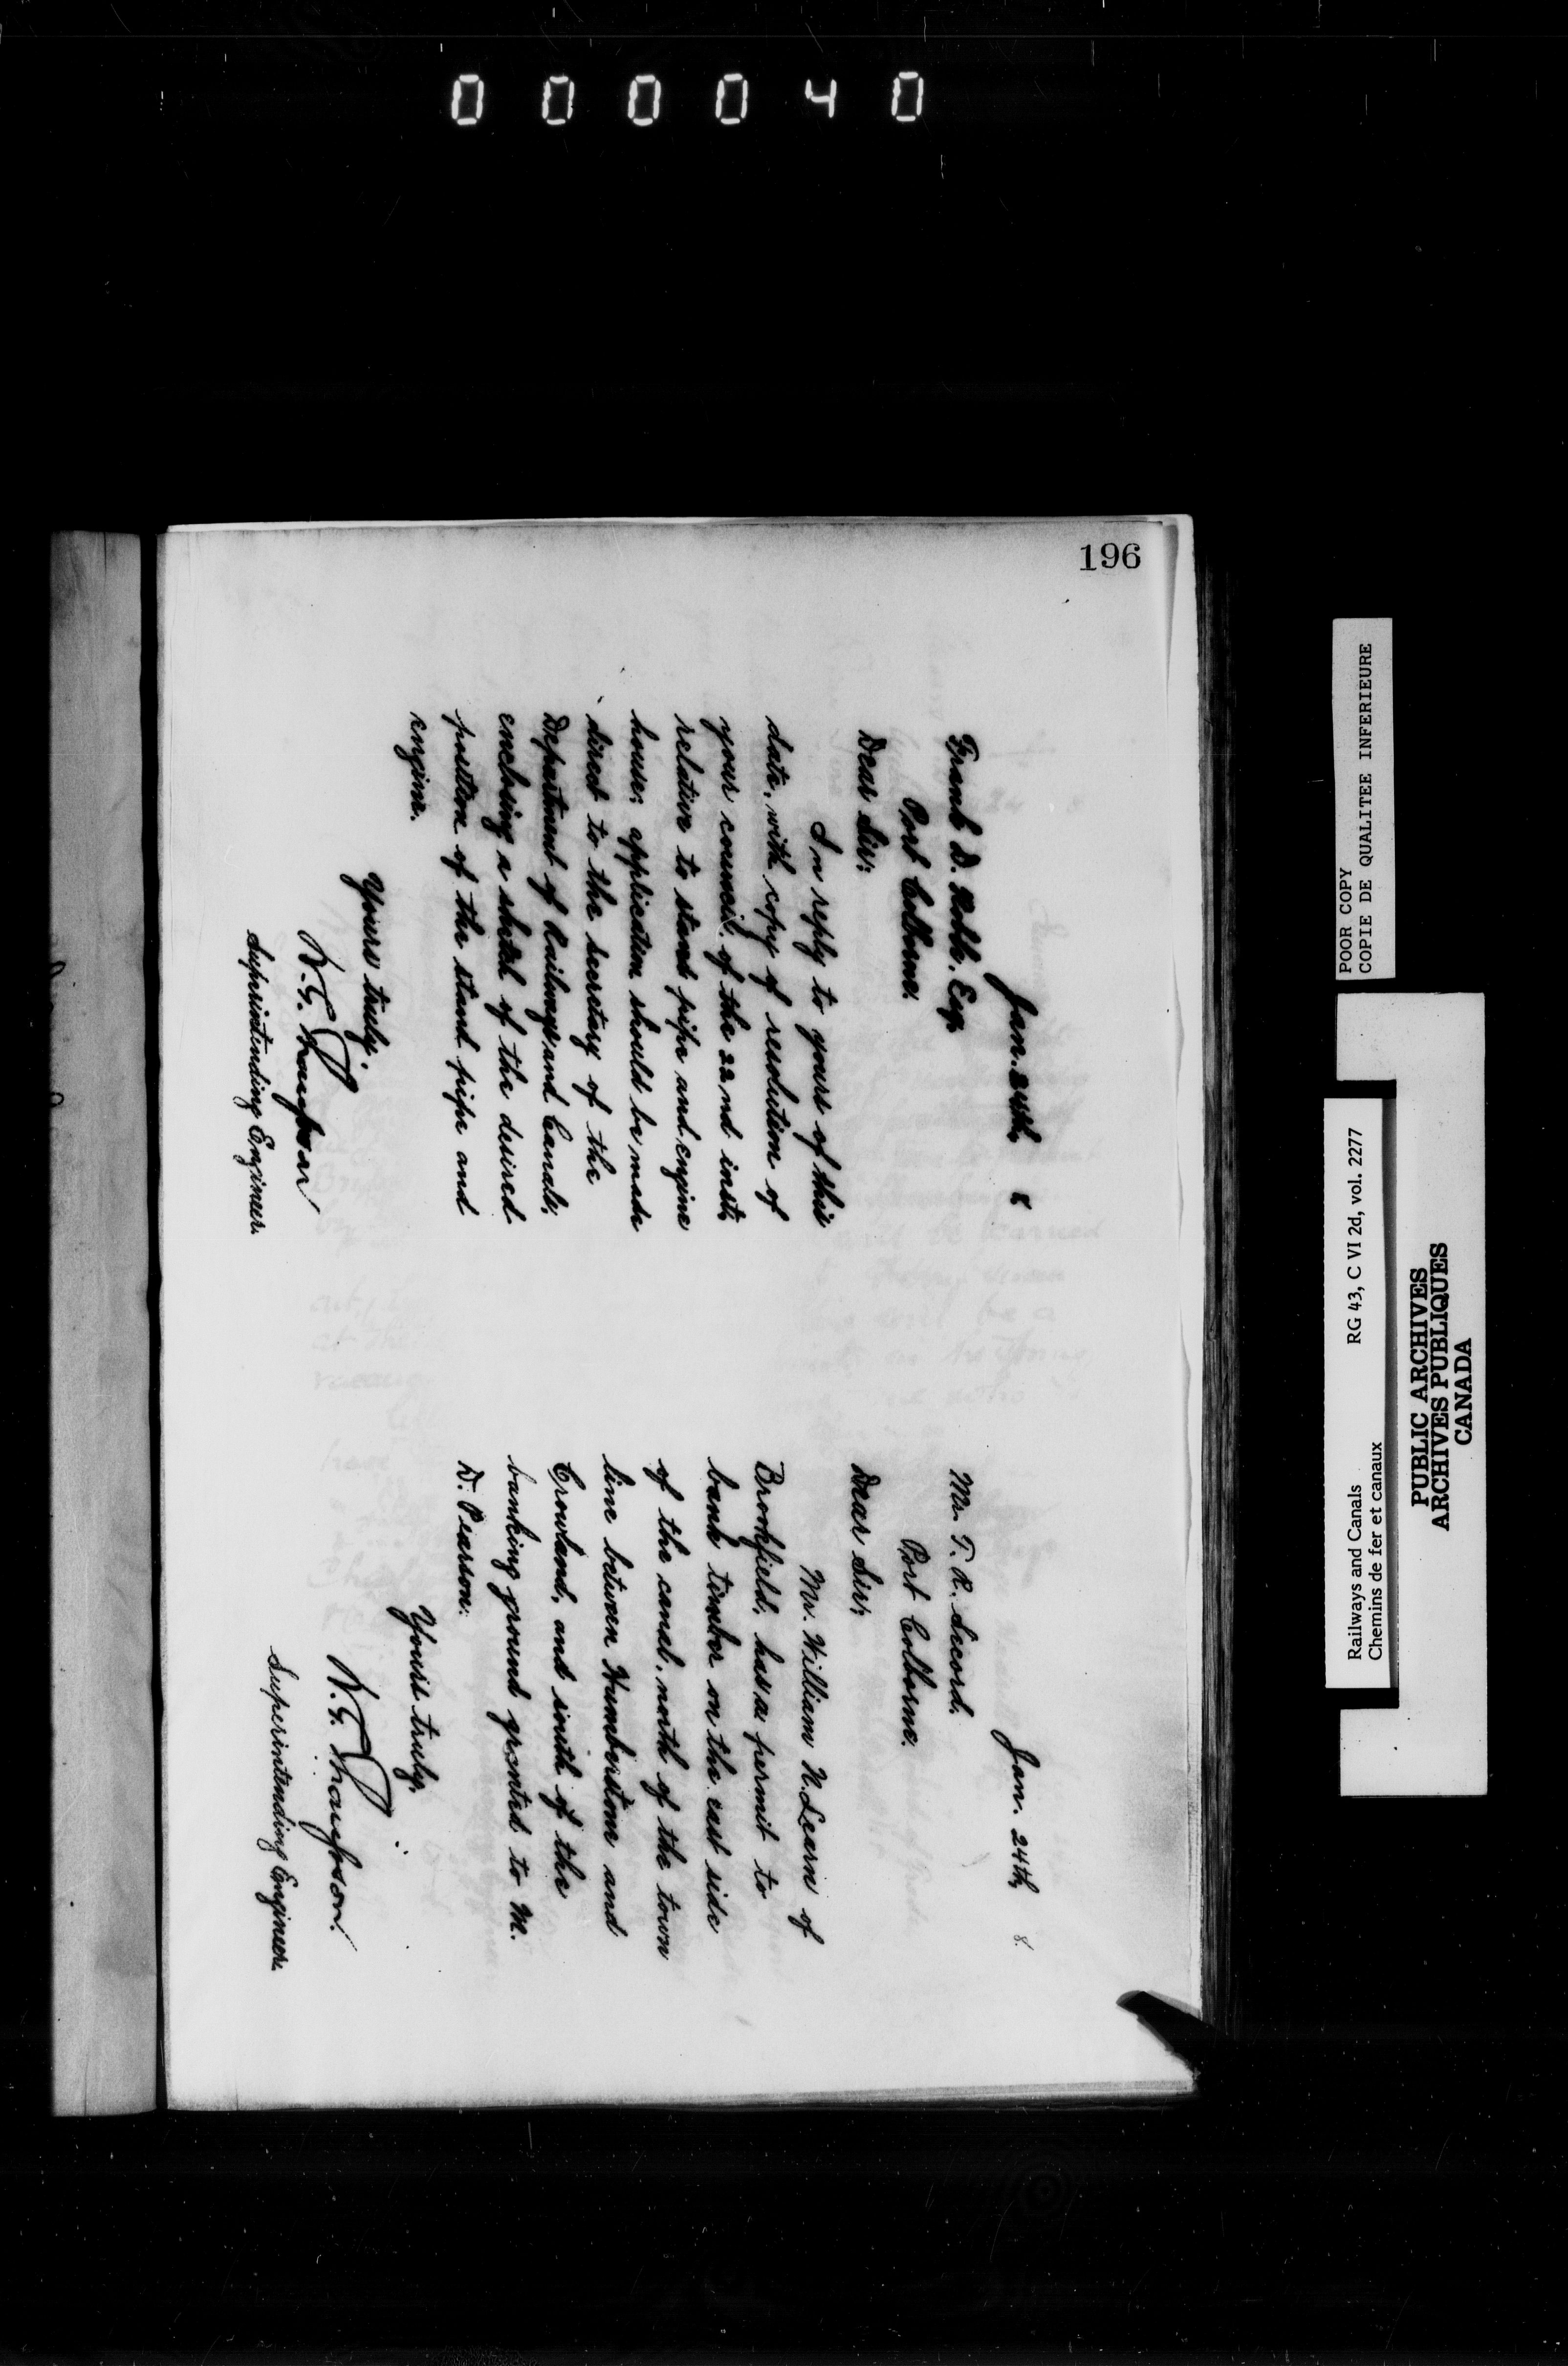 000040
196
Jan. 24th, 8
Frank D. Robb. Esq.
Port Colborne.
Dear Sir;
In reply to yours of this
date, with copy of resolution of
your council of the 22nd inst.
relative to stand pipe and engine
house; application should be made
direct to the secretary of the
Department of Railways and Canals,
enclosing a sketch of the desired
position of the stand pipe and
engine.
Yours truly.
W.G.
Superintending Engineer.
Jan. 24th, 8.
Mr. T. R. Secord.
Port Colborne.
Dear Sir;
Mr. William N. Learn of
Brookfield, has a permit to
bank timber on the east side
of the canal, north of the town
line between Humberstone and
Crowland, and south of the
banking ground granted to M.
D. Pearson.
Yours truly.
W.G. Thompson.
Superintending Engineer.
POOR COPY
COPIE DE QUALITEE INFERIEURE
Railways and Canals RG 43, C VI 2d, vol. 2277
Chemins de fer et canaux
PUBLIC ARCHIVES
ARCHIVES PUBLIQUES
CANADA